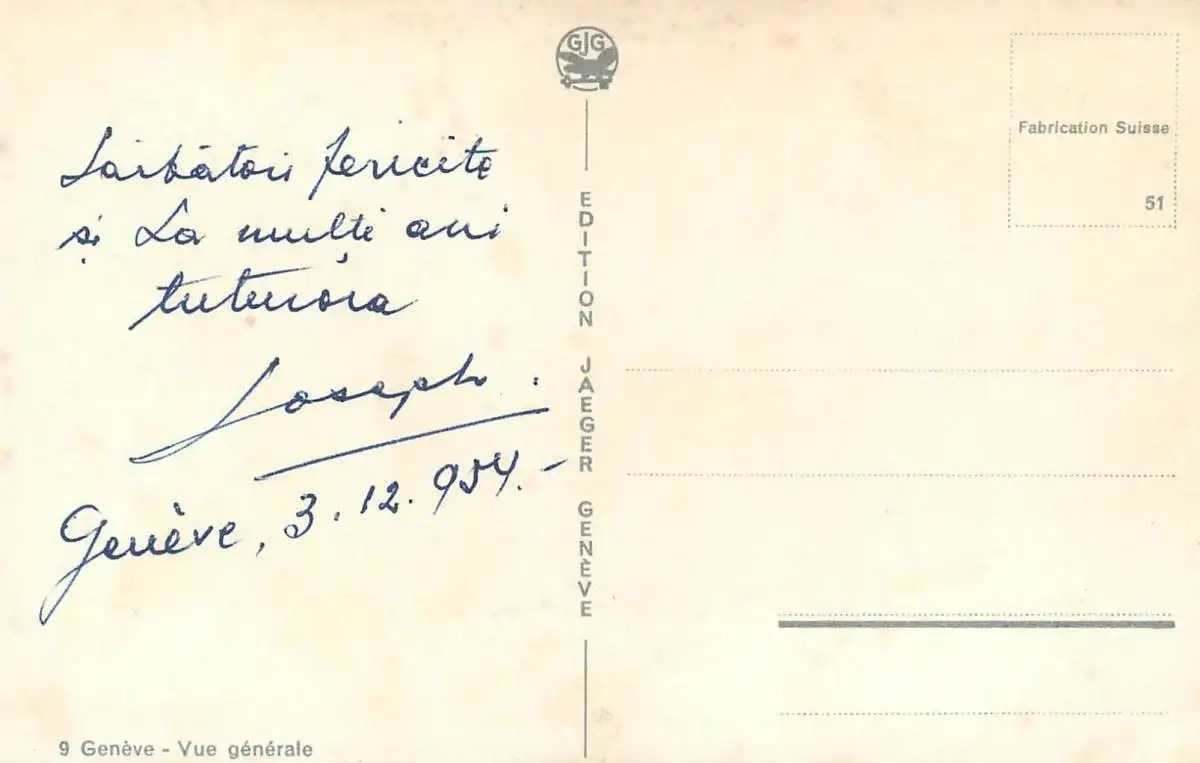 Sărbători fericite
și La mulți ani
tuturora
Joseph.
Genève, 3.12.954.-
9 Genève - Vue générale
GJG
EDITION JAEGER GENÈVE
Fabrication Suisse
51